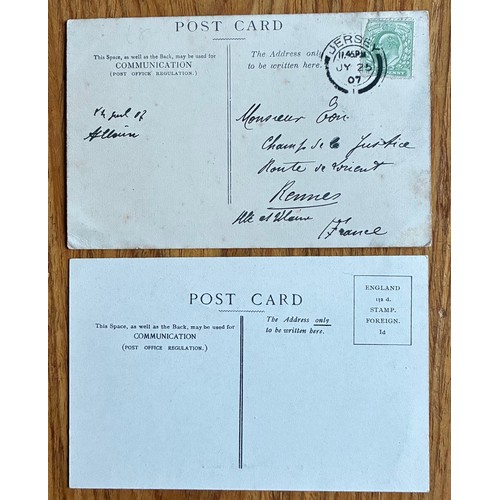 POST CARD
This Space, as well as the Back, may be used for
COMMUNICATION
(POST OFFICE REGULATION.)
The Address only
to be written here.
JERSEY
JY 25
07
1
Monsieur
Champ de la Justice
Route de Lorient
Rennes
Ille et Vilaine
France
POST CARD
This Space, as well as the Back, may be used for
COMMUNICATION
(POST OFFICE REGULATION.)
The Address only
to be written here.
ENGLAND
1/2 d.
STAMP.
FOREIGN.
1d